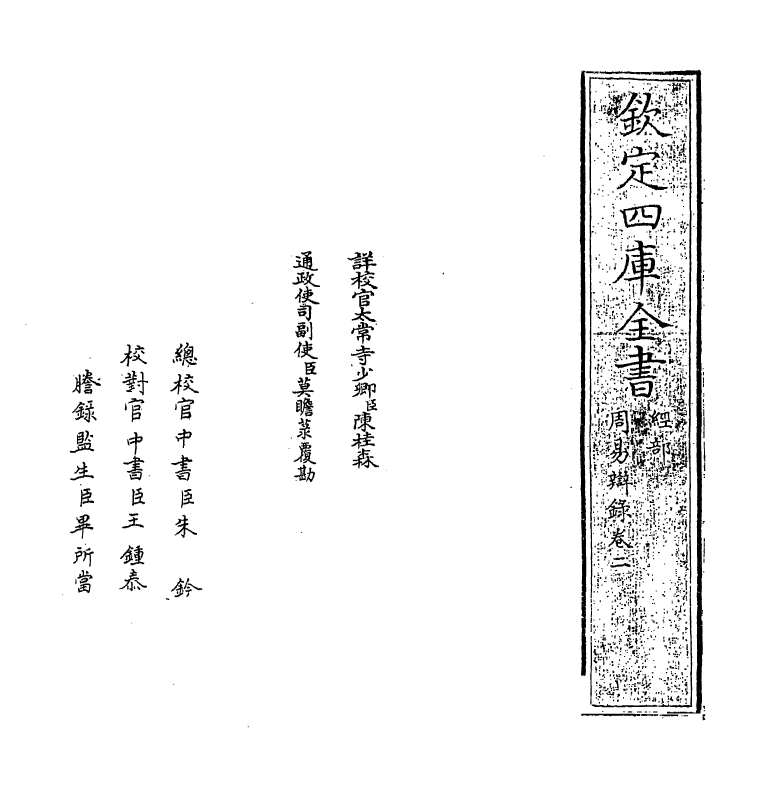 欽定四庫全書
經部
周易辯錄卷二
詳校官太常寺少卿臣陳桂森
通政使司副使臣莫瞻菉覆勘
總校官中書臣朱鈐
校對官中書臣王鍾泰
謄錄監生臣畢所當